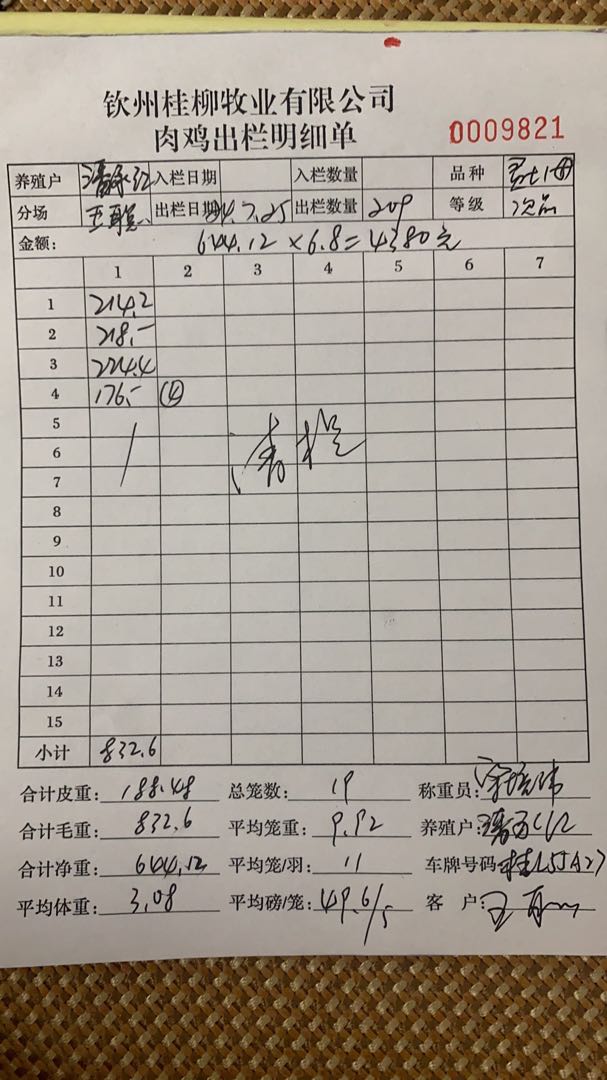 钦州桂柳牧业有限公司
肉鸡出栏明细单
0009821
养殖户 入栏日期 入栏数量 品种
分场 出栏日期 24.7.25 出栏数量 209 等级 次品
金额: 644.12×6.8=4380元
1 2 3 4 5 6 7
1 214.2
2 218.-
3 224.4
4 176.- ④
5
6 清栏
7
8
9
10
11
12
13
14
15
小计 832.6
合计皮重: 188.48 总笼数: 19 称重员:
合计毛重: 832.6 平均笼重: 9.92 养殖户:
合计净重: 644.12 平均笼/羽: 11 车牌号码:
平均体重: 3.08 平均磅/笼: 49.6/5 客户: